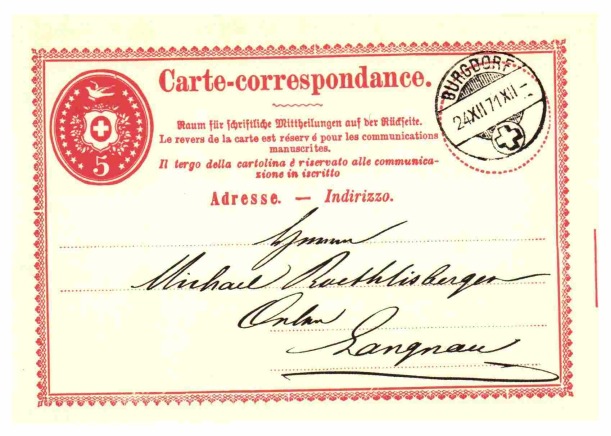 Carte-correspondance.
BURGDORF
24XII71XII-
5
Raum für schriftliche Mittheilungen auf der Rückseite.
Le revers de la carte est réserv é pour les communications
manuscrites.
Il tergo della cartolina é riservato alle communica-
zione in iscritto
Adresse. — Indirizzo.
Michael Roethlisberger
Langnau